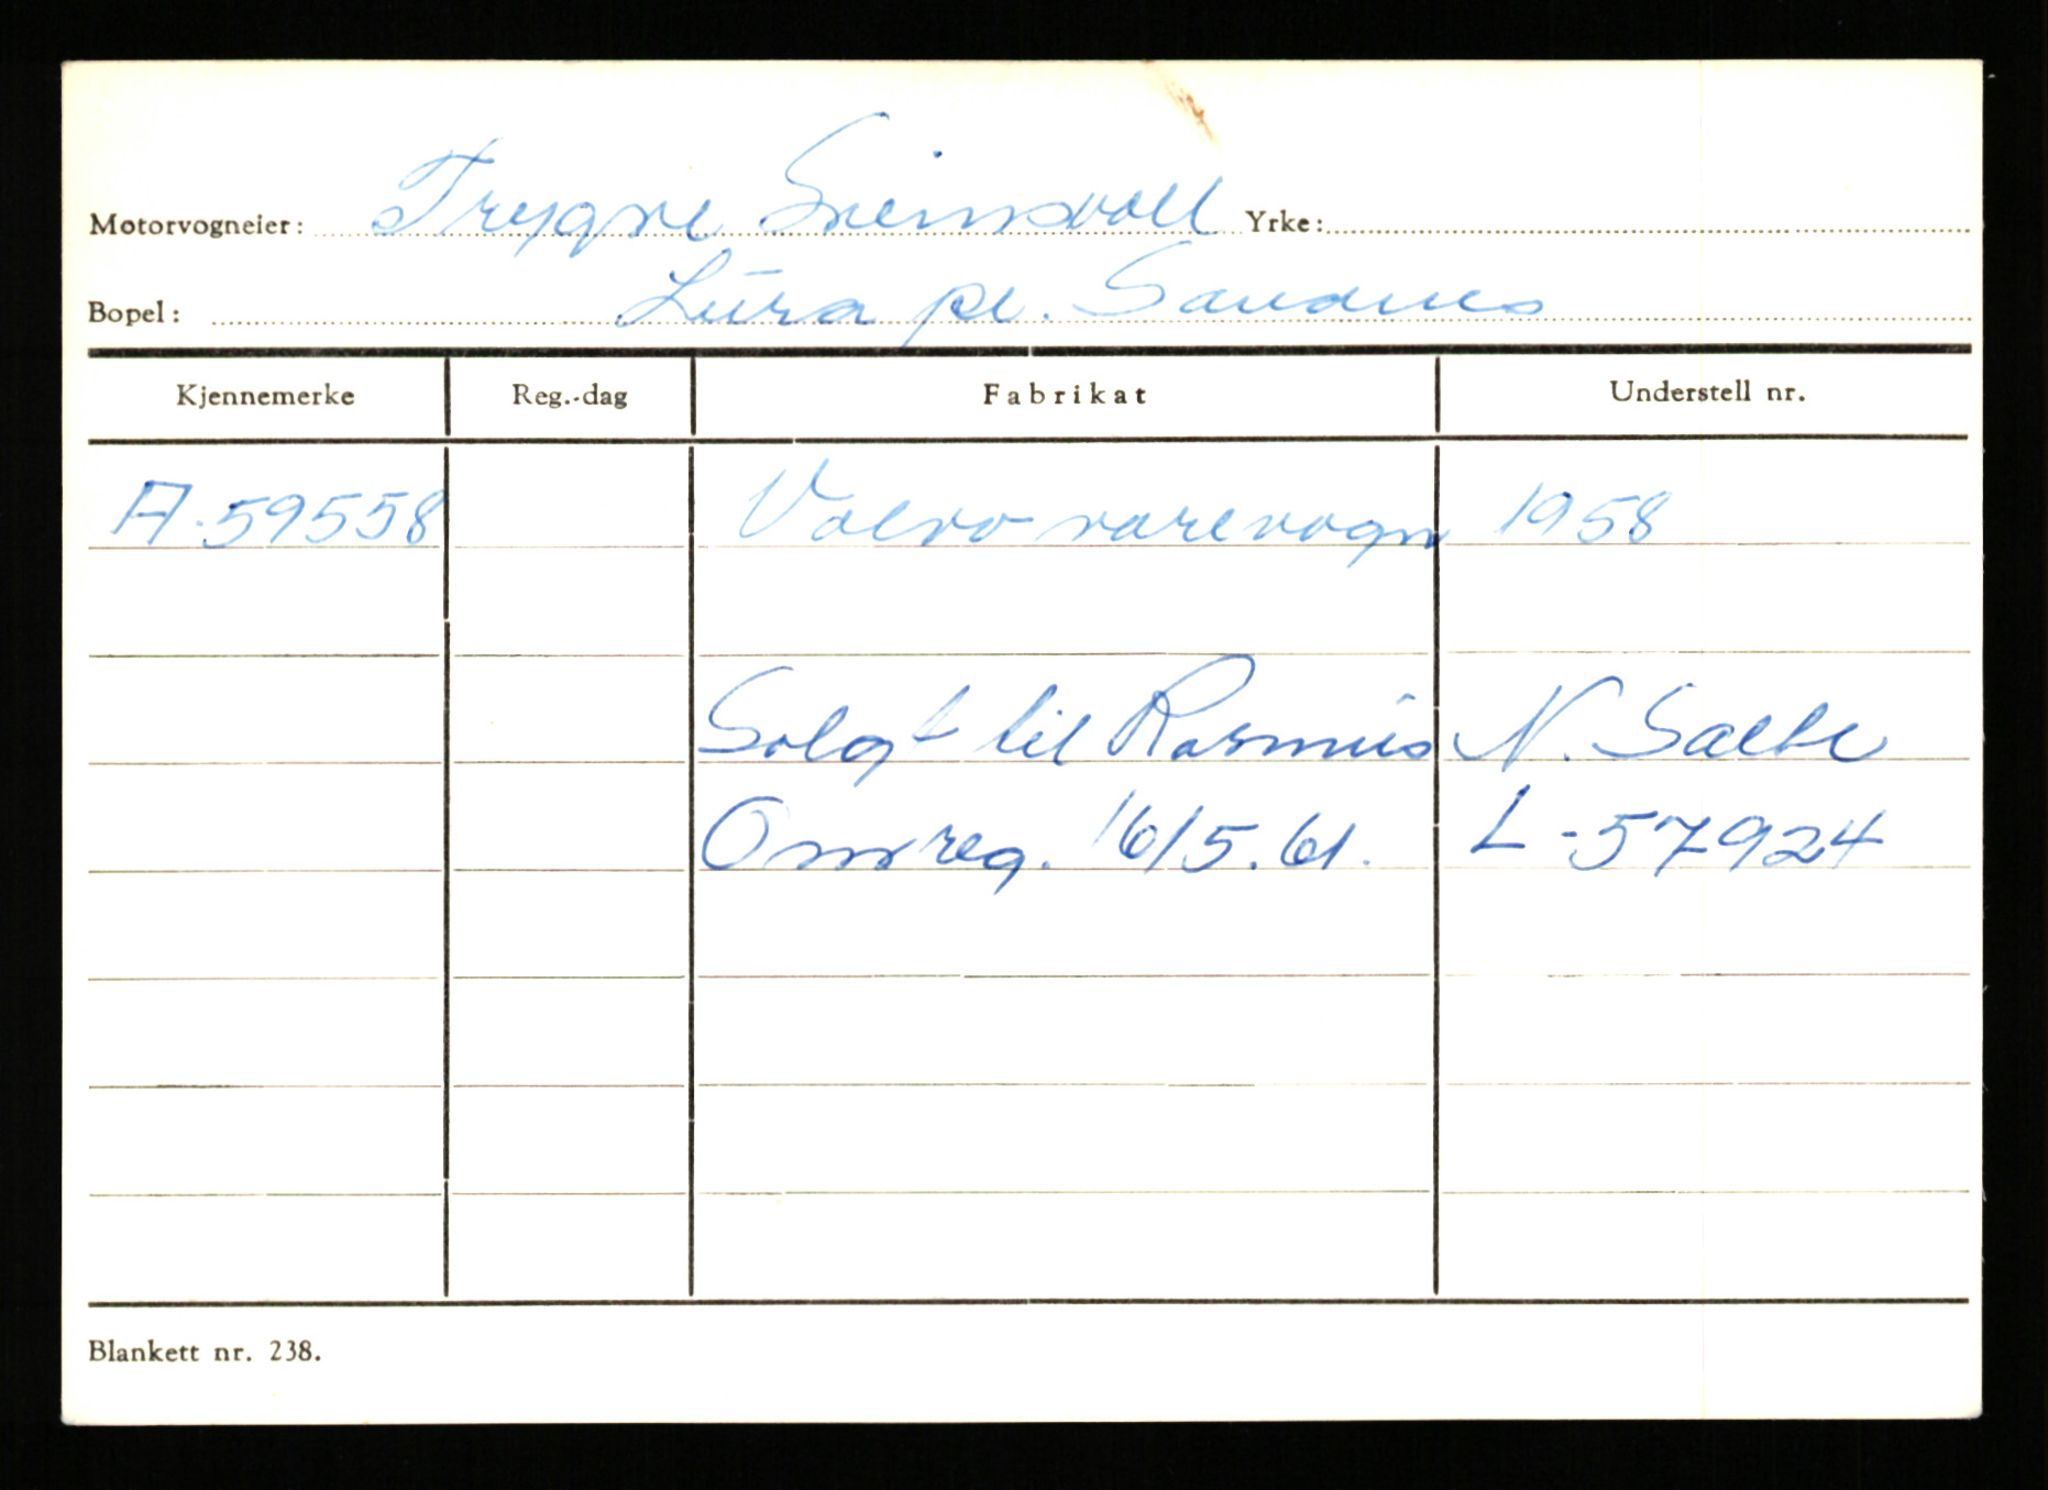 Motorvogneier: Trygve Sveinsvoll Yrke:
Bopel: Lura pr. Sandnes
Kjennemerke Reg.-dag Fabrikat Understell nr.
A-59558 Volvo varevogn 1958
Solgt til Rasmus N. Sælte
Omreg. 16/5.61. L-57924
Blankett nr. 238.